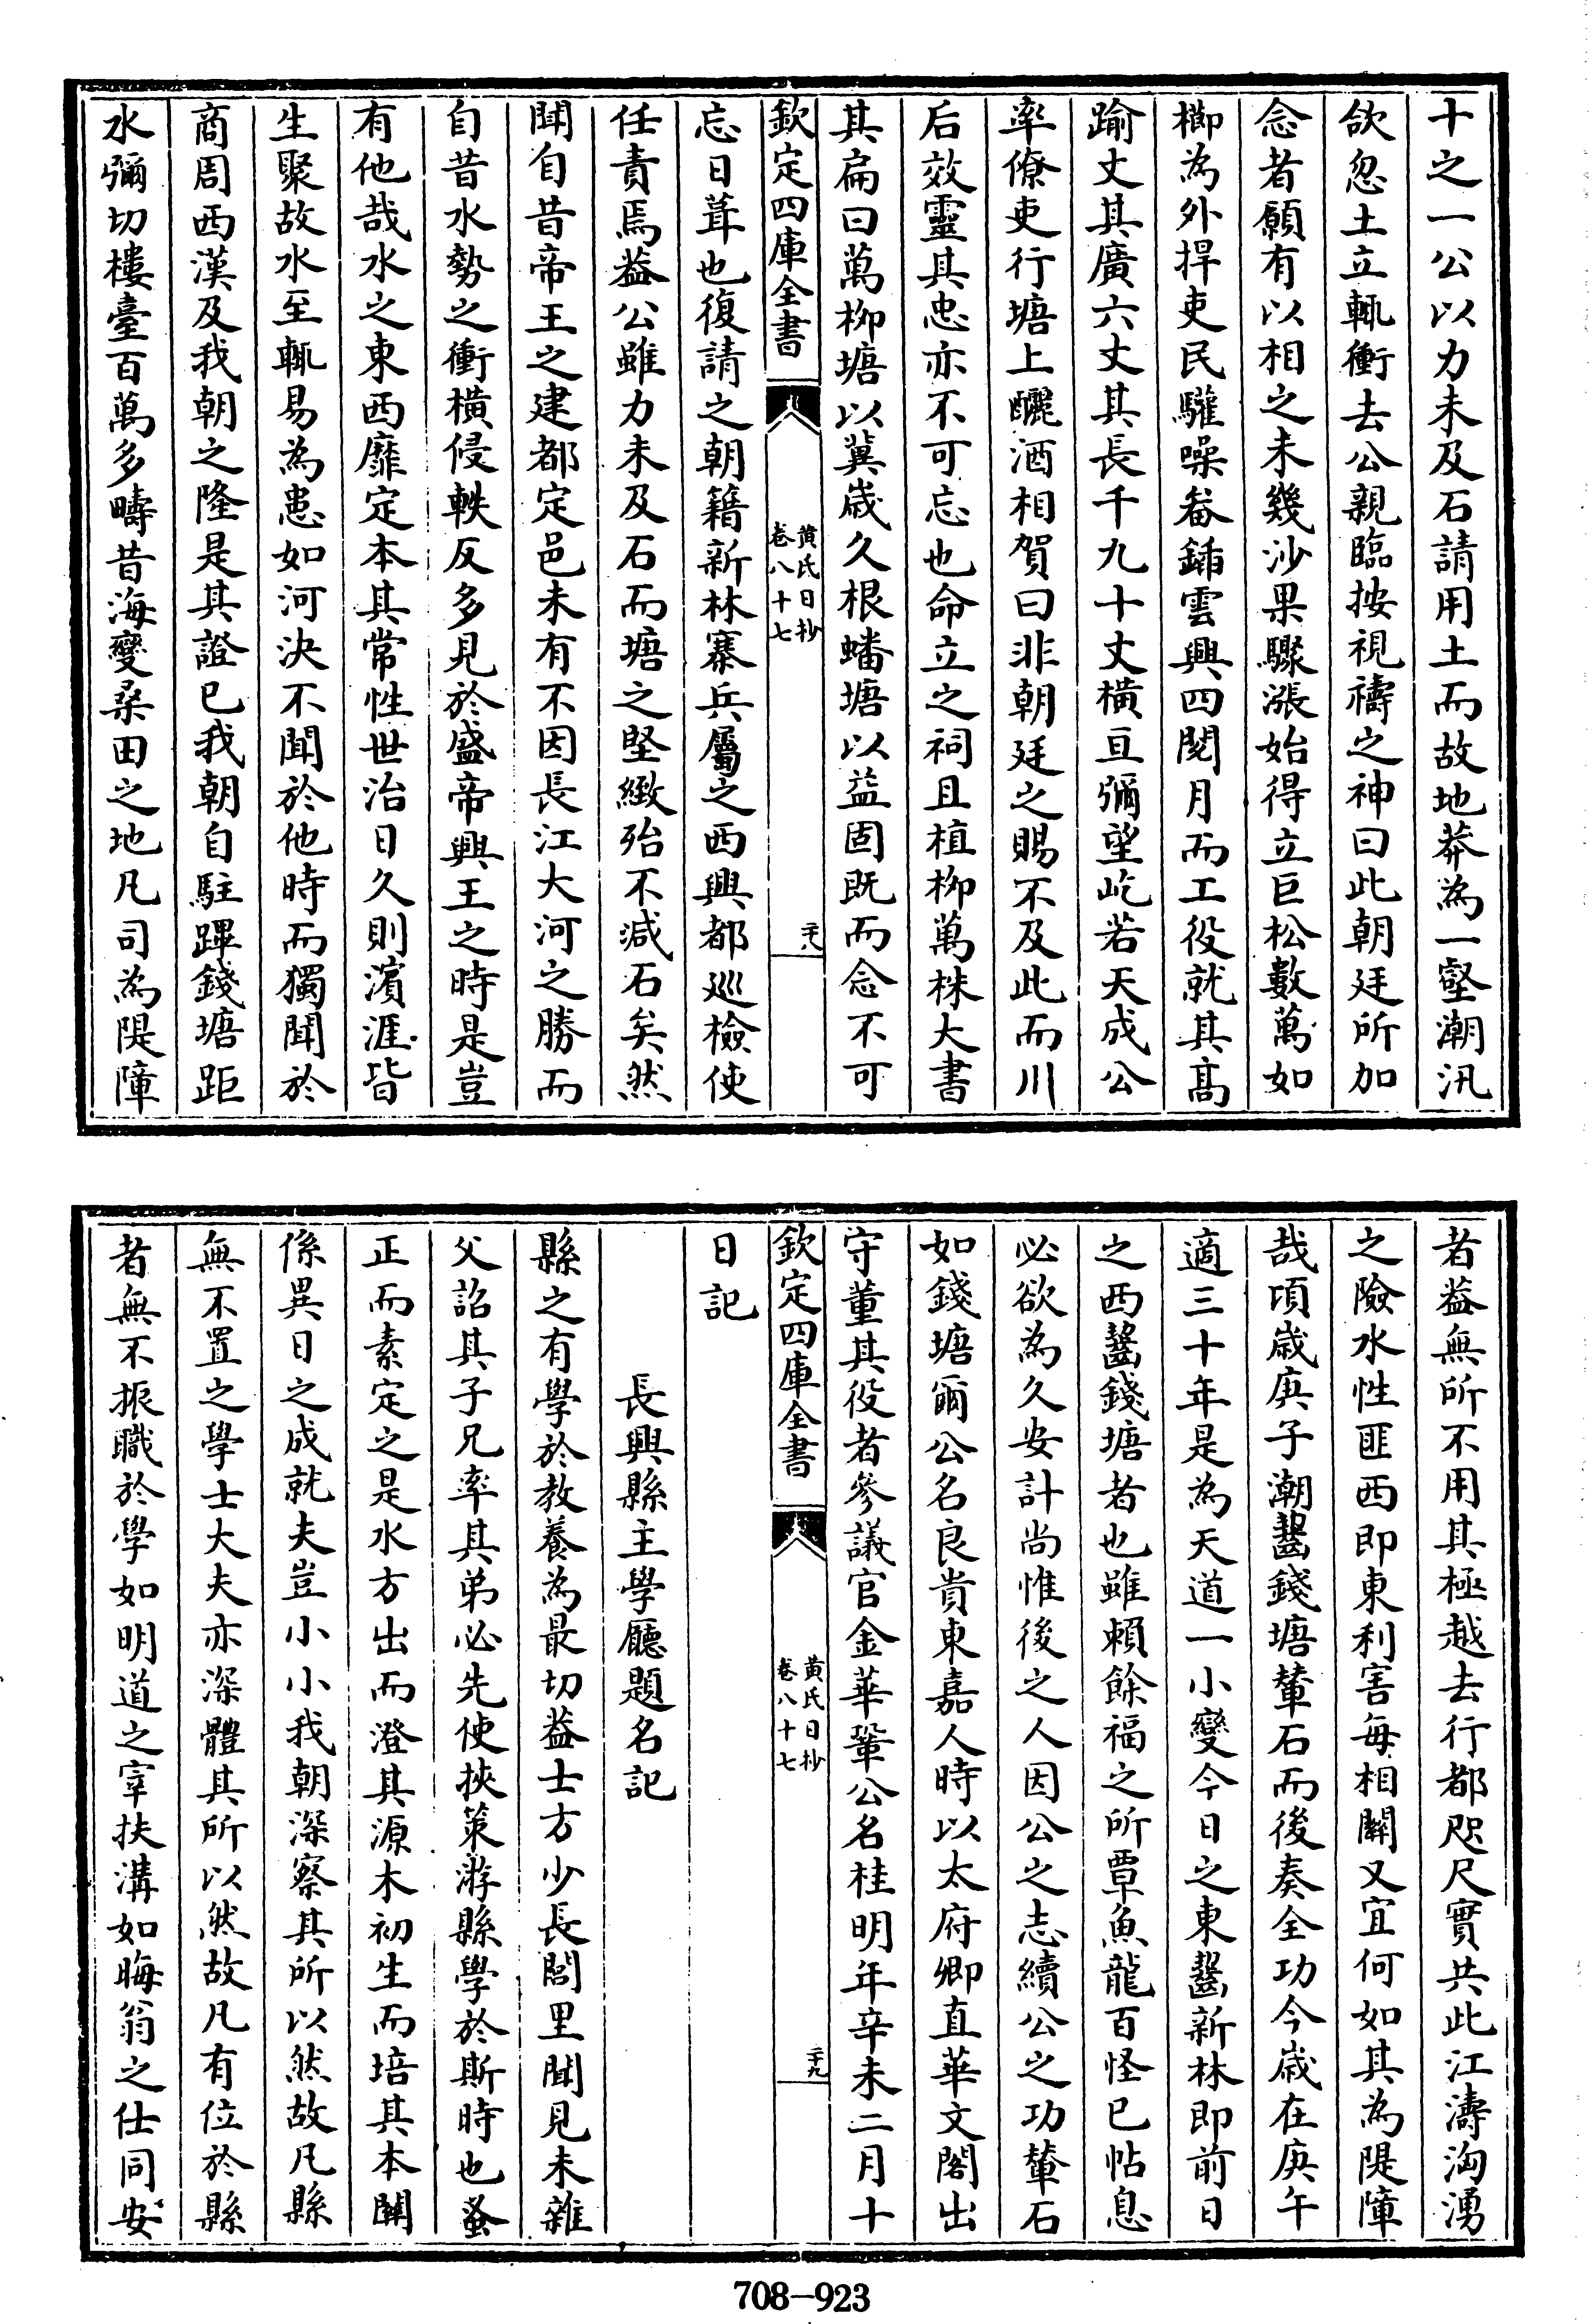 十之一公以力未及石請用土而故地莽為一壑潮汛
欲忽土立輒衝去公親臨按視禱之神曰此朝廷所加
念者願有以相之未幾沙果驟漲始得立巨松數萬如
櫛為外捍吏民驩噪畚鍤雲興四閱月而工役就其髙
踰丈其廣六丈其長千九十丈橫亘彌望屹若天成公
率僚吏行塘上釃酒相賀曰非朝廷之賜不及此而川
后效靈其忠亦不可忘也命立之祠且植栁萬株大書
其扁曰萬栁塘以冀歲久根蟠塘以益固既而念不可
欽定四庫全書
黄氏日抄
卷八十七
二十八
忘日葺也復請之朝籍新林寨兵屬之西興都廵檢使
任責焉葢公雖力未及石而塘之堅緻殆不減石矣然
聞自昔帝王之建都定邑未有不因長江大河之勝而
自昔水勢之衝橫侵軼反多見於盛帝興王之時是豈
有他哉水之東西靡定本其常性世治日久則濱涯皆
生聚故水至輒易為患如河決不聞於他時而獨聞於
商周西漢及我朝之隆是其證已我朝自駐蹕錢塘距
水彌切樓臺百萬多疇昔海變桑田之地凡司為隄障
者葢無所不用其極越去行都咫尺實共此江濤洶湧
之險水性匪西即東利害每相關又宜何如其為隄障
哉項歲庚子潮齧錢塘輦石而後奏全功今歲在庚午
適三十年是為天道一小變今日之東齧新林即前日
之西齧錢塘者也雖賴餘福之所覃魚龍百怪已帖息
必欲為久安計尚惟後之人因公之志續公之功輦石
如錢塘爾公名良貴東嘉人時以太府卿直華文閣出
守董其役者參議官金華鞏公名桂明年辛未二月十
欽定四庫全書
黄氏日抄
卷八十七
二十九
日記
長興縣主學廳題名記
縣之有學於教養為最切葢士方少長閭里聞見未雜
父詔其子兄率其弟必先使挾策游縣學於斯時也蚤
正而素定之是水方出而澄其源木初生而培其本關
係異日之成就夫豈小小我朝深察其所以然故凡縣
無不置之學士大夫亦深體其所以然故凡有位於縣
者無不振職於學如明道之宰扶溝如晦翁之仕同安
708—923